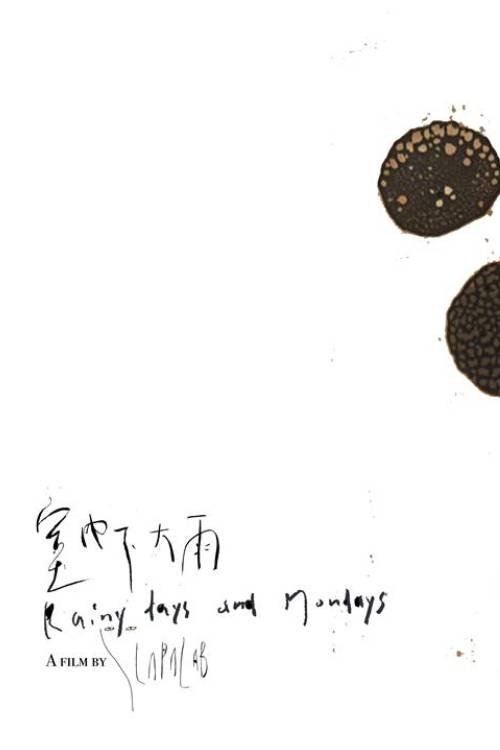 室内下大雨
Rainy days and Mondays
A FILM BY LAPALAB